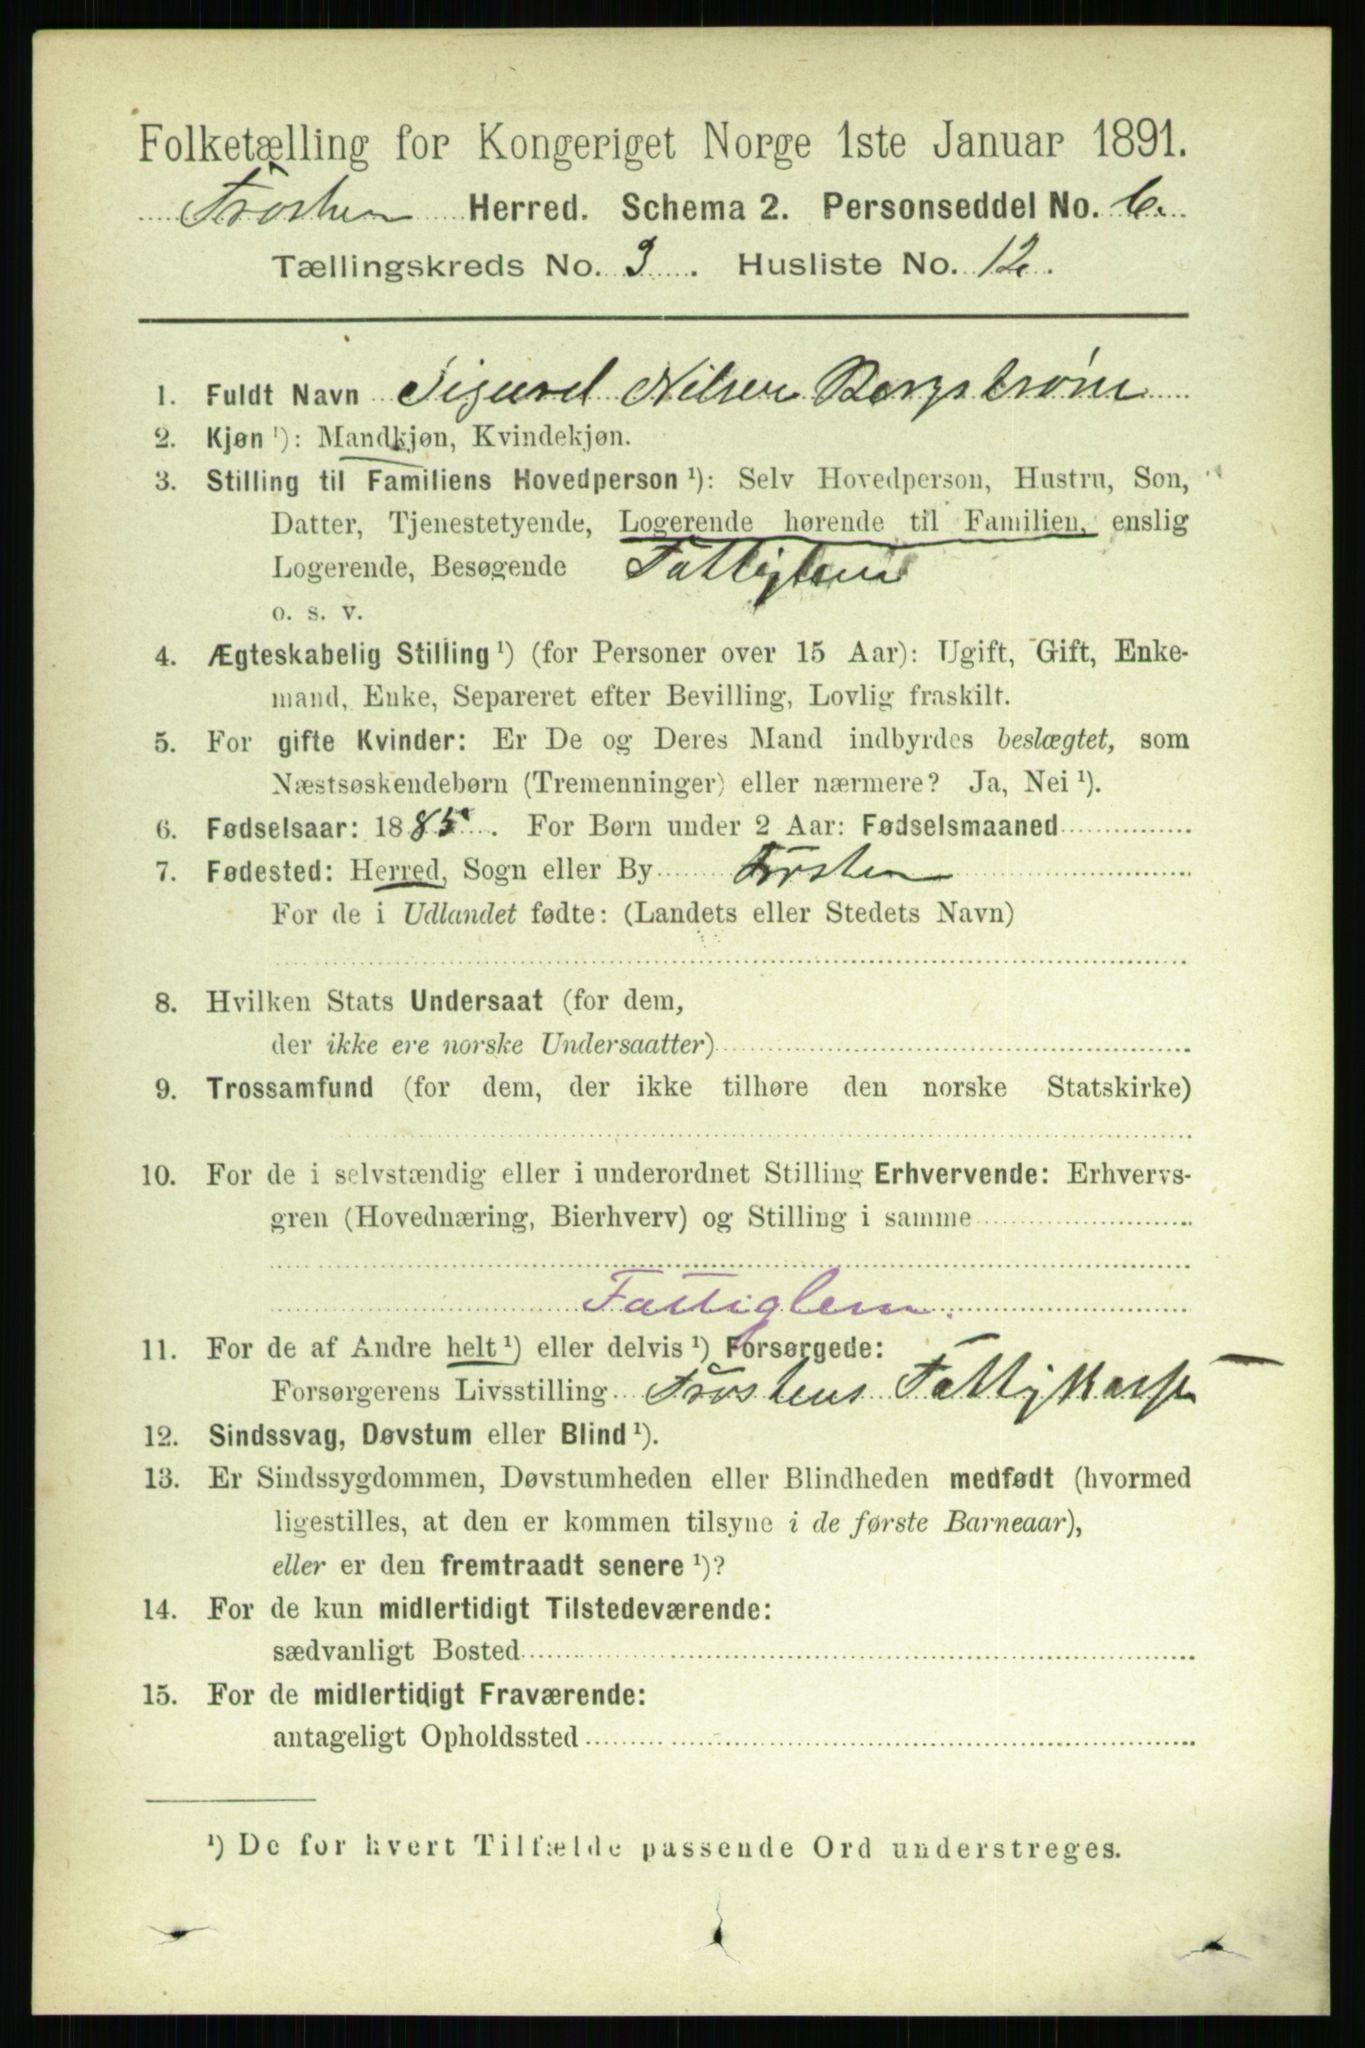 Folketælling for Kongeriget Norge 1ste Januar 1891.
Frosten Herred. Schema 2. Personseddel No. 6.
Tællingskreds No. 3. Husliste No. 12.
1. Fuldt Navn Sigurd Nilsen Bergstrøm
2. Kjøn ¹): Mandkjøn, Kvindekjøn.
3. Stilling til Familiens Hovedperson ¹): Selv Hovedperson, Hustru, Søn,
Datter, Tjenestetyende, Logerende hørende til Familien, enslig
Logerende, Besøgende Fattiglem
o. s. v.
4. Ægteskabelig Stilling ¹) (for Personer over 15 Aar): Ugift, Gift, Enke-
mand, Enke, Separeret efter Bevilling, Lovlig fraskilt.
5. For gifte Kvinder: Er De og Deres Mand indbyrdes beslægtet, som
Næstsøskendebørn (Tremenninger) eller nærmere? Ja, Nei ¹).
6. Fødselsaar: 1885. For Børn under 2 Aar: Fødselsmaaned
7. Fødested: Herred, Sogn eller By Frosten
For de i Udlandet fødte: (Landets eller Stedets Navn)
8. Hvilken Stats Undersaat (for dem,
der ikke ere norske Undersaatter)
9. Trossamfund (for dem, der ikke tilhøre den norske Statskirke)
10. For de i selvstændig eller i underordnet Stilling Erhvervende: Erhvervs-
gren (Hovednæring, Bierhverv) og Stilling i samme
Fattiglem.
11. For de af Andre helt ¹) eller delvis ¹) Forsørgede:
Forsørgerens Livsstilling Frostens Fattigkasse
12. Sindssvag, Døvstum eller Blind ¹).
13. Er Sindssygdommen, Døvstumheden eller Blindheden medfødt (hvormed
ligestilles, at den er kommen tilsyne i de første Barneaar),
eller er den fremtraadt senere ¹)?
14. For de kun midlertidigt Tilstedeværende:
sædvanligt Bosted
15. For de midlertidigt Fraværende:
antageligt Opholdssted
¹) De for hvert Tilfælde passende Ord understreges.